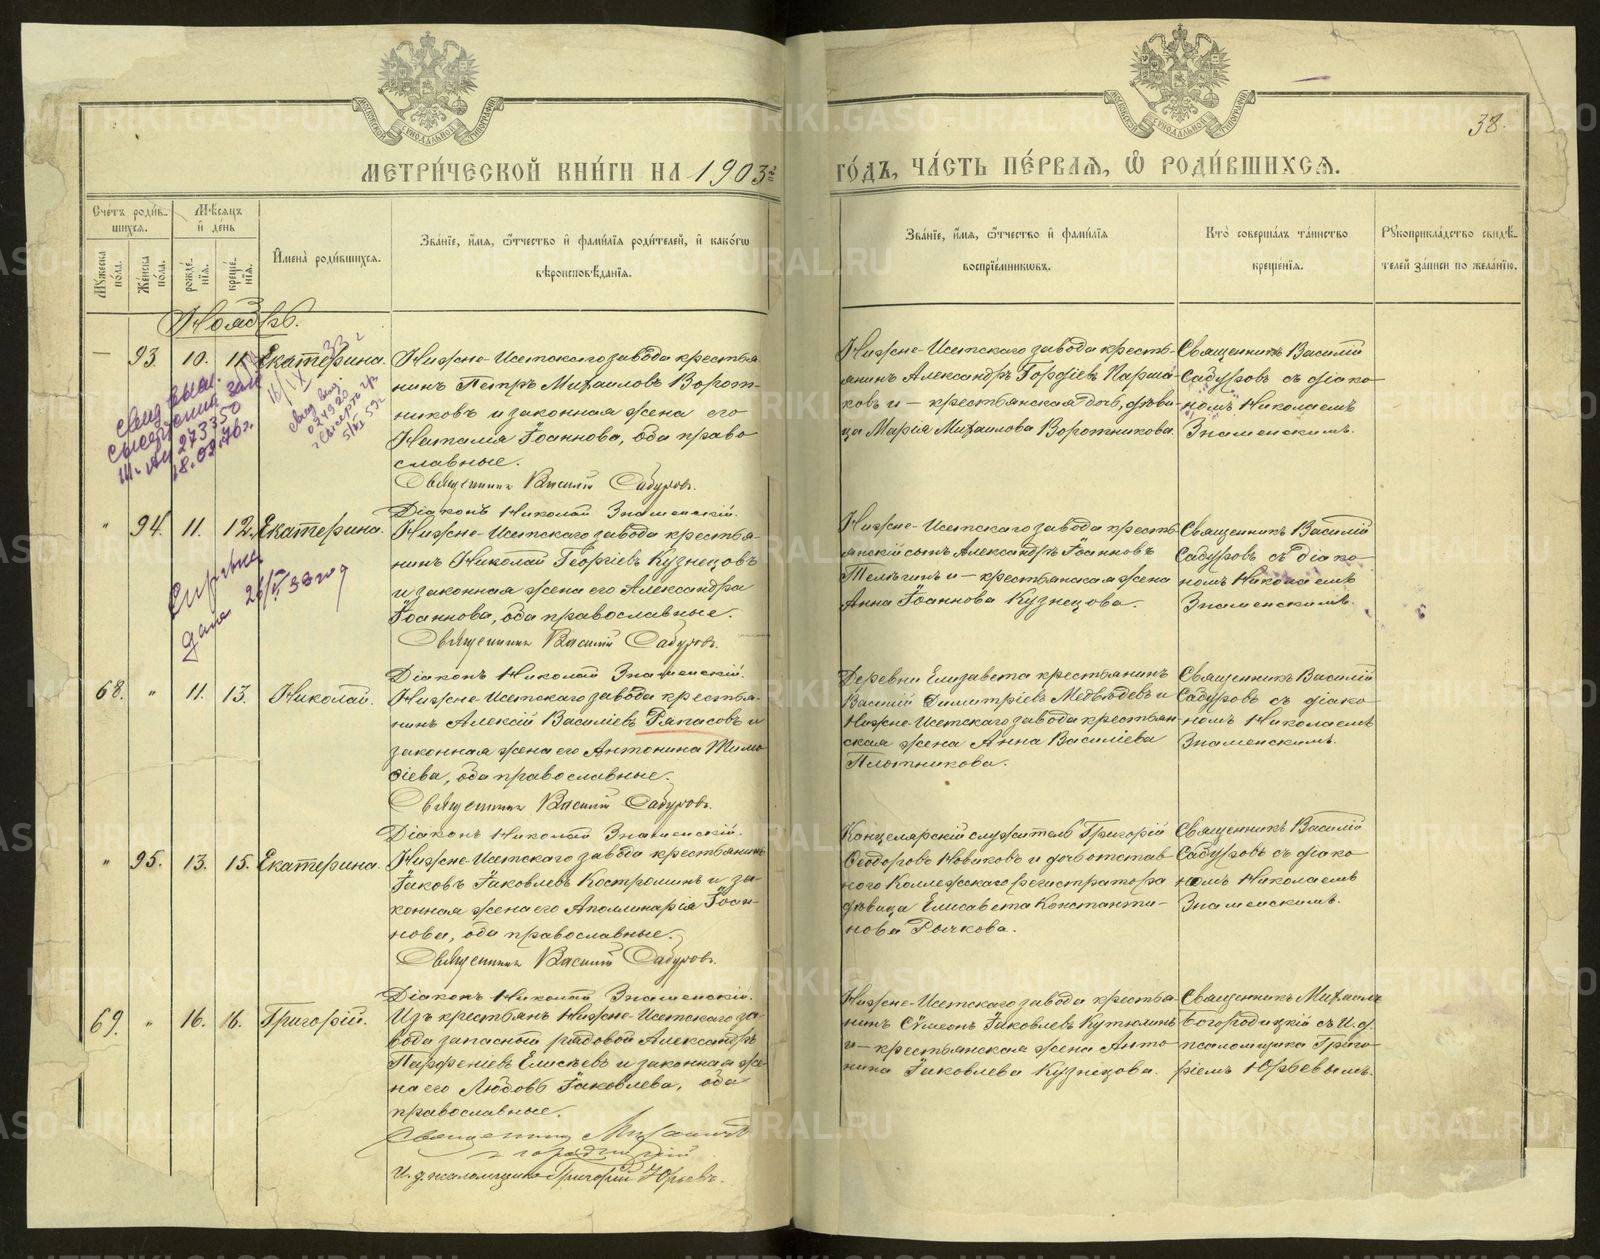 38.
МЕТРИ́ЧЕСКОЙ КНИ́ГИ НА 1903 г.
ГО́ДЪ, ЧА́СТЬ ПЕ́РВАѦ, Ѡ҆ РОДИ́ВШИХСѦ.
Сче́тъ роди́в-
шихсѧ.
Мѣ́сяцъ
и҆ де́нь
Мꙋ́жеска по́ла.
Же́нска по́ла.
рожде́нїѧ.
креще́нїѧ.
И҆мена̀ роди́вшихсѧ.
Зва́нїе, и҆́мѧ, ѻ҆́тчество и҆ фами́лїѧ роди́телей, и҆ како́гѡ
вѣроисповѣ́данїѧ.
Зва́нїе, и҆́мѧ, ѻ҆́тчество и҆ фами́лїѧ
воспрїе́мникѡвъ.
Кто̀ соверша́лъ та́инство
креще́нїѧ.
Рꙋкоприкла́дство свидѣ́-
телей за́писи по жела́нїю.
Ноябрь.
— 93. 10. 11. Екатерина.
Нижне-Исетскаго завода крестья-
нинъ Петръ Михаиловъ Ворот-
никовъ и законная жена его
Наталія Іоаннова, оба право
славные.
Священникъ Василій Сабуровъ.
Діаконъ Николай Знаменскій.
Нижне-Исетскаго завода кресть-
янинъ Александръ Гордіевъ Парша-
ковъ и — крестьянская дочь, дѣви-
ца Марія Михаилова Воротникова.
Священникъ Василій
Сабуровъ съ діако-
номъ Николаемъ
Знаменскимъ.
" 94. 11. 12. Екатерина.
Нижне-Исетскаго завода крестья-
нинъ Николай Георгіевъ Кузнецовъ
и законная жена его Александра
Іоаннова, оба православные.
Священникъ Василій Сабуровъ.
Діаконъ Николай Знаменскій.
Нижне-Исетскаго завода кресть-
янскій сынъ Александръ Іоанновъ
Телегинъ и — крестьянская жена
Анна Іоаннова Кузнецова.
Священникъ Василій
Сабуровъ съ діако-
номъ Николаемъ
Знаменскимъ.
68. " 11. 13. Николай.
Нижне-Исетскаго завода крестья-
нинъ Алексій Василіевъ Рапасовъ и
законная жена его Антонина Тимо-
ѳіева, оба православные.
Священникъ Василій Сабуровъ.
Діаконъ Николай Знаменскій.
Деревни Елизавета крестьянинъ
Василій Димитріевъ Медвѣдевъ и
Нижне-Исетскаго завода крестьян-
ская жена Анна Василіева
Плотникова.
Священникъ Василій
Сабуровъ съ діако-
номъ Николаемъ
Знаменскимъ.
" 95. 13. 15. Екатерина.
Нижне-Исетскаго завода крестьянинъ
Іаковъ Іаковлевъ Костроминъ и за-
конная жена его Аполлинарія Іоан-
нова, оба православные.
Священникъ Василій Сабуровъ.
Діаконъ Николай Знаменскій.
Канцелярскій служитель Григорій
Ѳеодоровъ Новиковъ и дочь отстав-
ного Коллежскаго регистратора
дѣвица Елисавета Константи-
нова Рычкова.
Священникъ Василій
Сабуровъ съ діако-
номъ Николаемъ
Знаменскимъ.
69. " 16. 16. Григорій.
Изъ крестьянъ Нижне-Исетскаго за-
вода запасный рядовой Александръ
Парѳеніевъ Елисѣевъ и законная же-
на его Любовь Іаковлева, оба
православные.
Священникъ Михаилъ
Богородицкій
И. д. псаломщика Григорій Юрьевъ.
Нижне-Исетскаго завода крестья-
нинъ Сѵмеонъ Іаковлевъ Кутюхинъ
и — крестьянская жена Анто-
нина Іаковлева Кузнецова.
Священникъ Михаилъ
Богородицкій съ И. д.
псаломщика Григо-
ріемъ Юрьевымъ.
METRIKI.GASO-URAL.RU